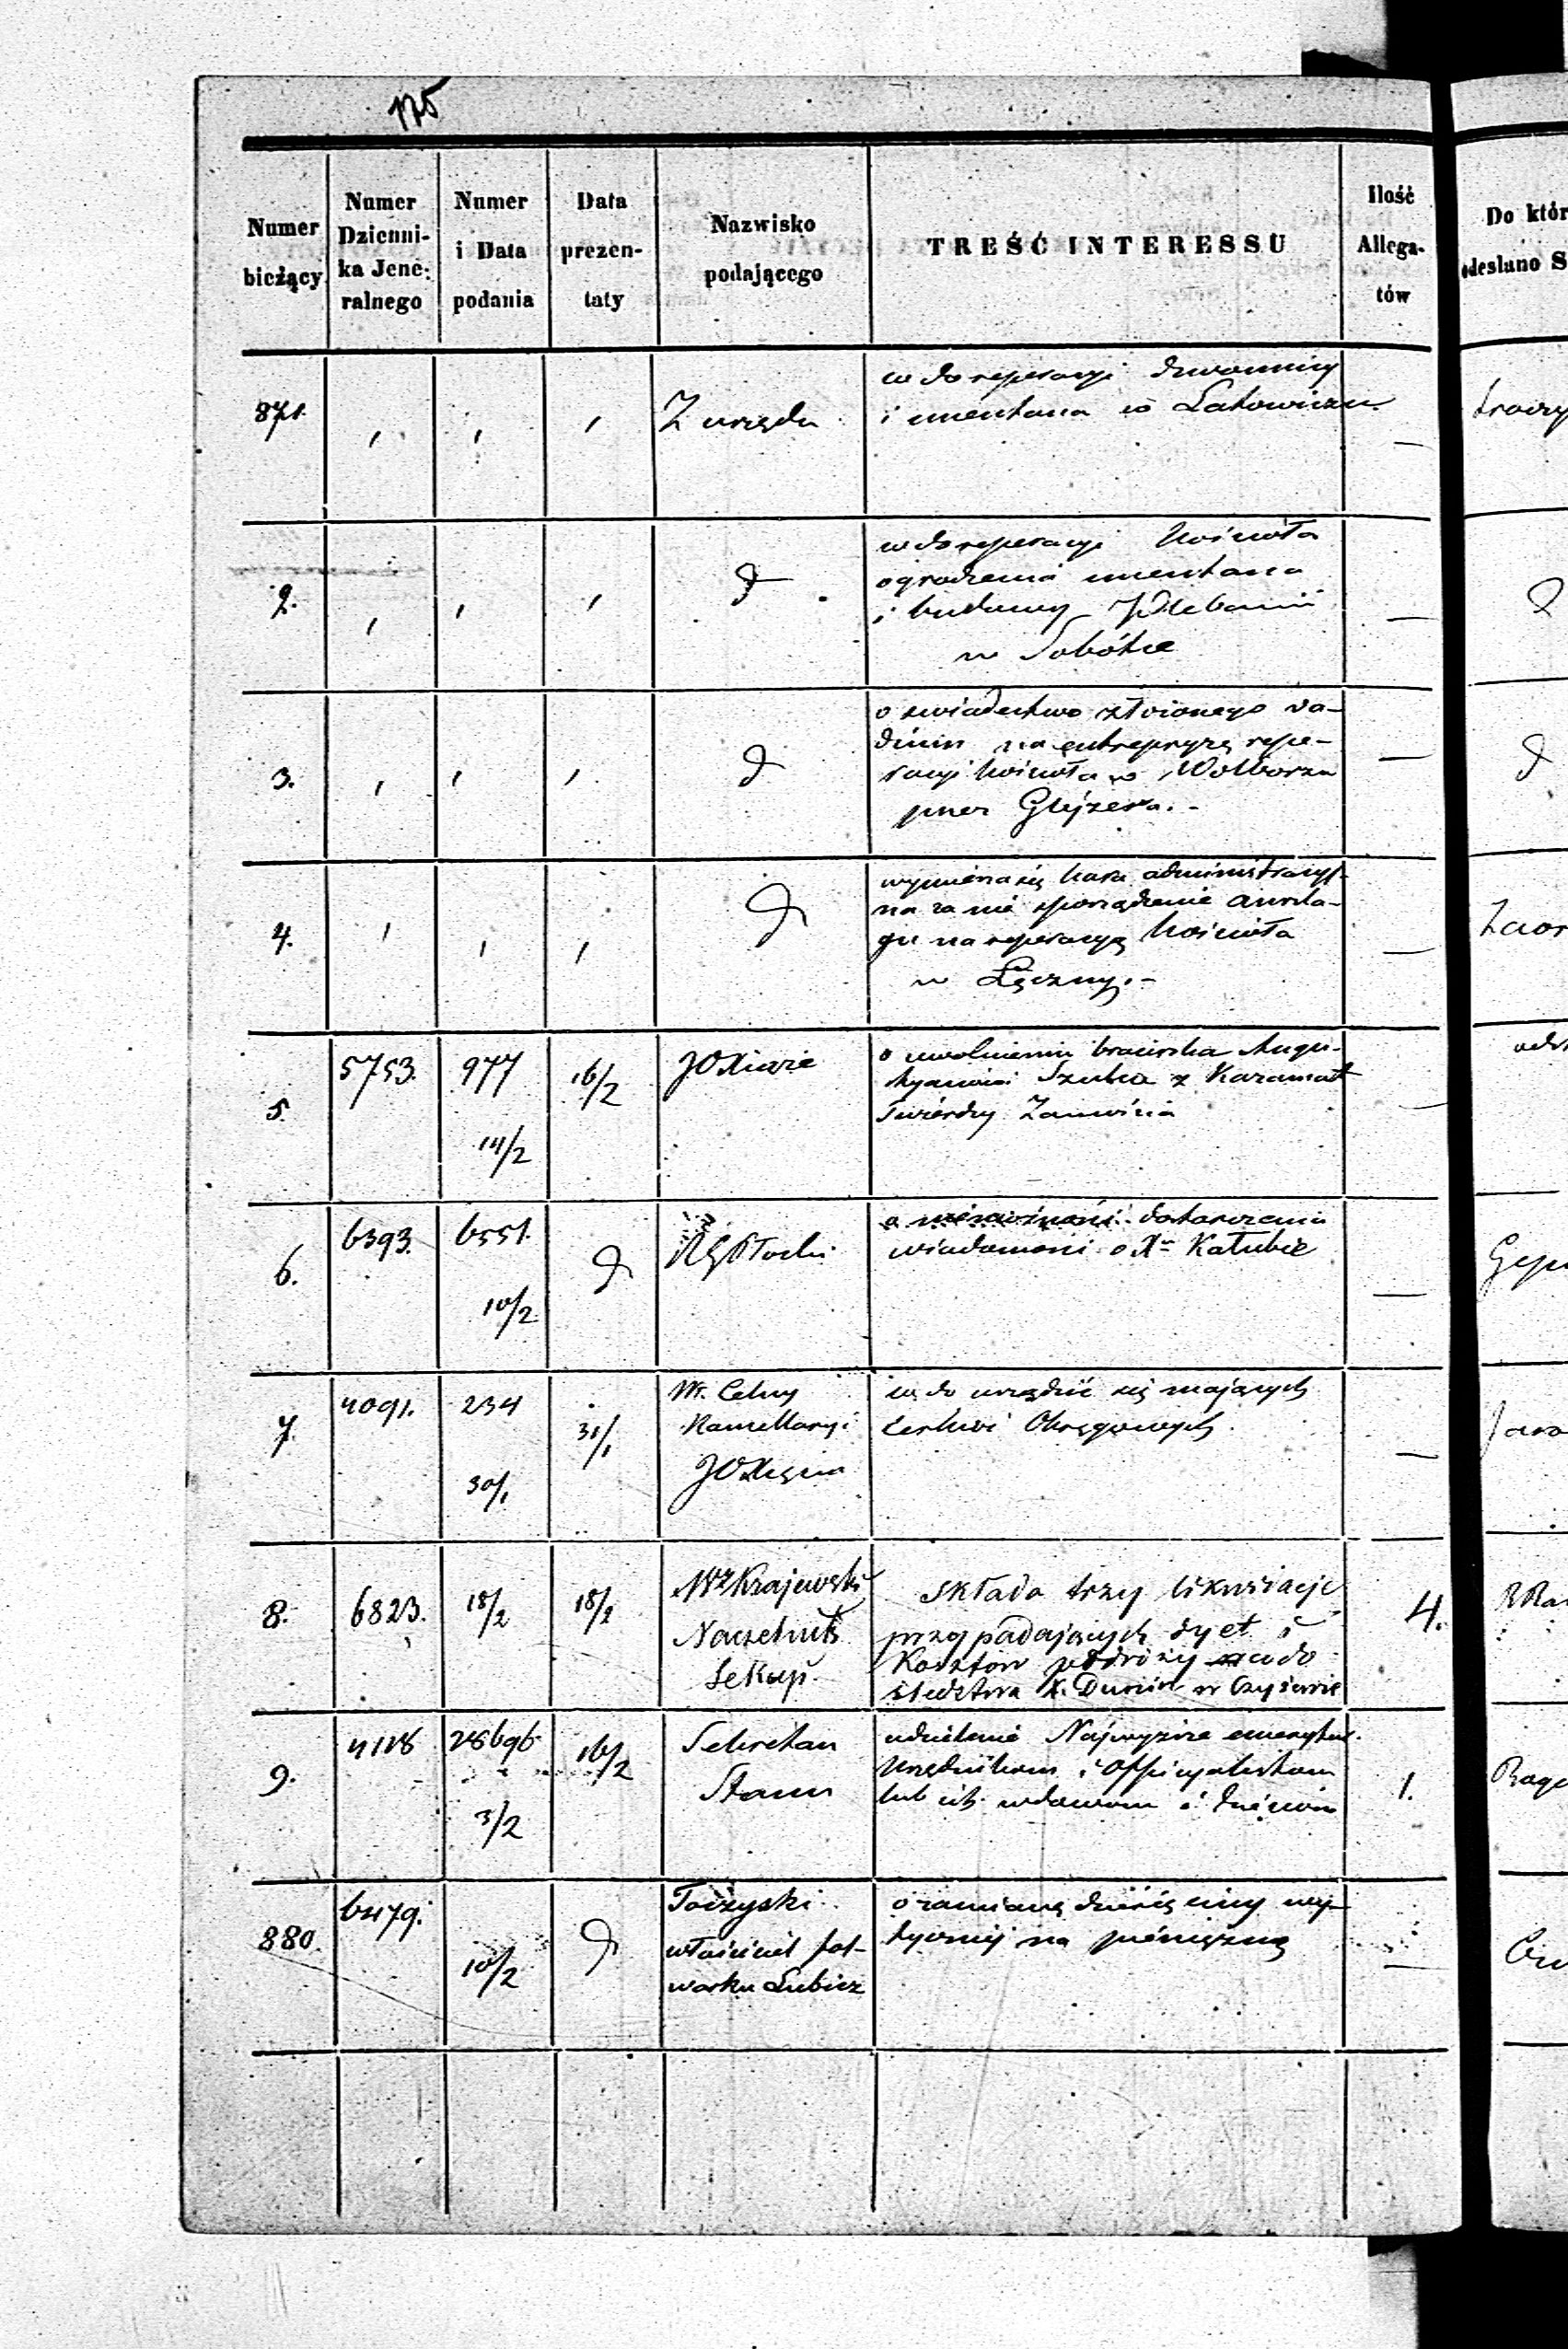 175
Numer bieżący
Numer Dzienni- ka Jene- ralnego
Numer i Data podania
Data prezen- taty
Nazwisko podającego
TREŚĆ INTERESSU
Ilość Allega- tów
Do któr
odesłano S
871. , , , Z urzędu
w do reperacyi dzwonnicy
i cmentarza w Latowiczu. —
2. , , , d
w do reperacyi kościoła
ogrodzenia cmentarza
i budowy Plebanii
w Sobótce —
3. , , , d
o świadectwo złożonego va-
dium na entrepryzę repe-
racyi kościoła w Wolborzu
przez Glejzera. - —
4. , , , d
wymierza się kara administracyj-
na za nie sporządzenie anszla-
gu na reperacyą kościoła
w Łęczny. - —
5. 5753. 977 14/2 16/2 JOXiąże
o uwolnieniu braciszka Augu-
styanina Szubca z Kazamat
Twierdzy Zamościa —
6. 6393. 6551. 10/2 d RG Płocki
dostarczenia
wiadomości o Xu Kałubie —
7. 4091. 234 30/1 31/1
W. Celny
Kancellaryi
JOXięcia
w do urządzić się mających
Cerkwi Okręgowych. —
8. 6823. 18/2 18/2
Krajewski
Naczelnik
Sekcyi
Składa trzy likwidacje
przypadających dyet i
Kosztów podróży w do
śledztwa X. Dunin w Czyżewie
4.
9. 4118 28696 3/2 16/2
Sekretarz
Stanu
udzielenie Najwyższe emerytur
Urzędnikom i Officyalistom
lub ich wdowom i dzieciom
1.
880. 6479. 10/2 d
Toczyski
właściciel fol-
warku Lubicz
o zamianę dziesięciny wy-
tycznej na pieniężną —